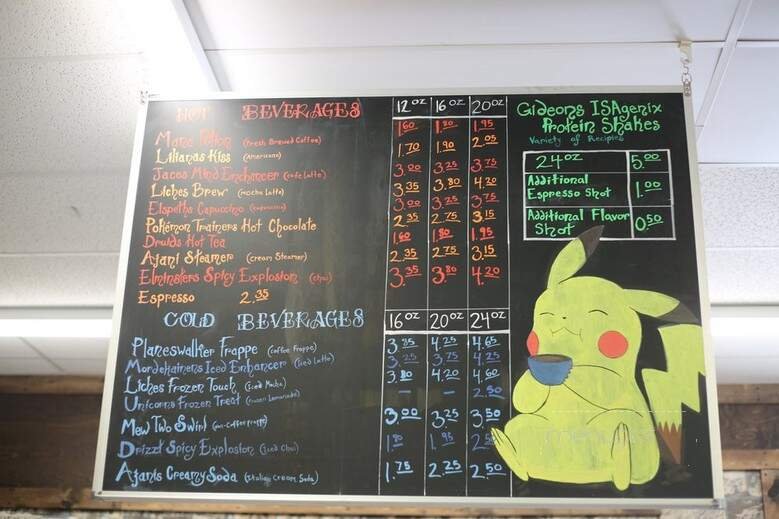 HOT BEVERAGES 12 oz 16 oz 20 oz
Mana Potion (Fresh Brewed Coffee) 1.60 1.80 1.95
Lilianas Kiss (Americano) 1.70 1.90 2.05
Jaces Mind Enchancer (cafe latte) 3.00 3.25 3.75
Liches Brew (mocha latte) 3.35 3.80 4.20
Elspeths Capuccino (capuccino) 3.00 3.25 3.75
Pokémon Trainers Hot Chocolate 2.35 2.75 3.15
Druids Hot Tea 1.60 1.80 1.95
Ajani Steamer (cream Steamer) 2.35 2.75 3.15
Elminsters Spicy Explosion (chai) 3.35 3.80 4.20
Espresso 2.35
COLD BEVERAGES 16 oz 20 oz 24 oz
Planeswalker Frappe (coffee Frappe) 3.85 4.25 4.65
Mordenkainens Iced Enhancer (Iced Latte) 3.25 3.75 4.25
Liches Frozen Touch (Iced Mocha) 3.80 4.20 4.60
Unicorns Frozen Treat (Frozen Lemonade) – – 2.50
Mew Two Swirl (non-coffee frappe) 3.00 3.25 3.50
Drizzt Spicy Explosion (Iced Chai) 1.80 1.95
Ajanis Creamy Soda (Italian Cream Soda) 1.75 2.25 2.50
Gideons ISAgenix
Protein Shakes
Variety of Recipies
24 oz 5.00
Additional
Espresso Shot 1.00
Additional Flavor
Shot 0.50